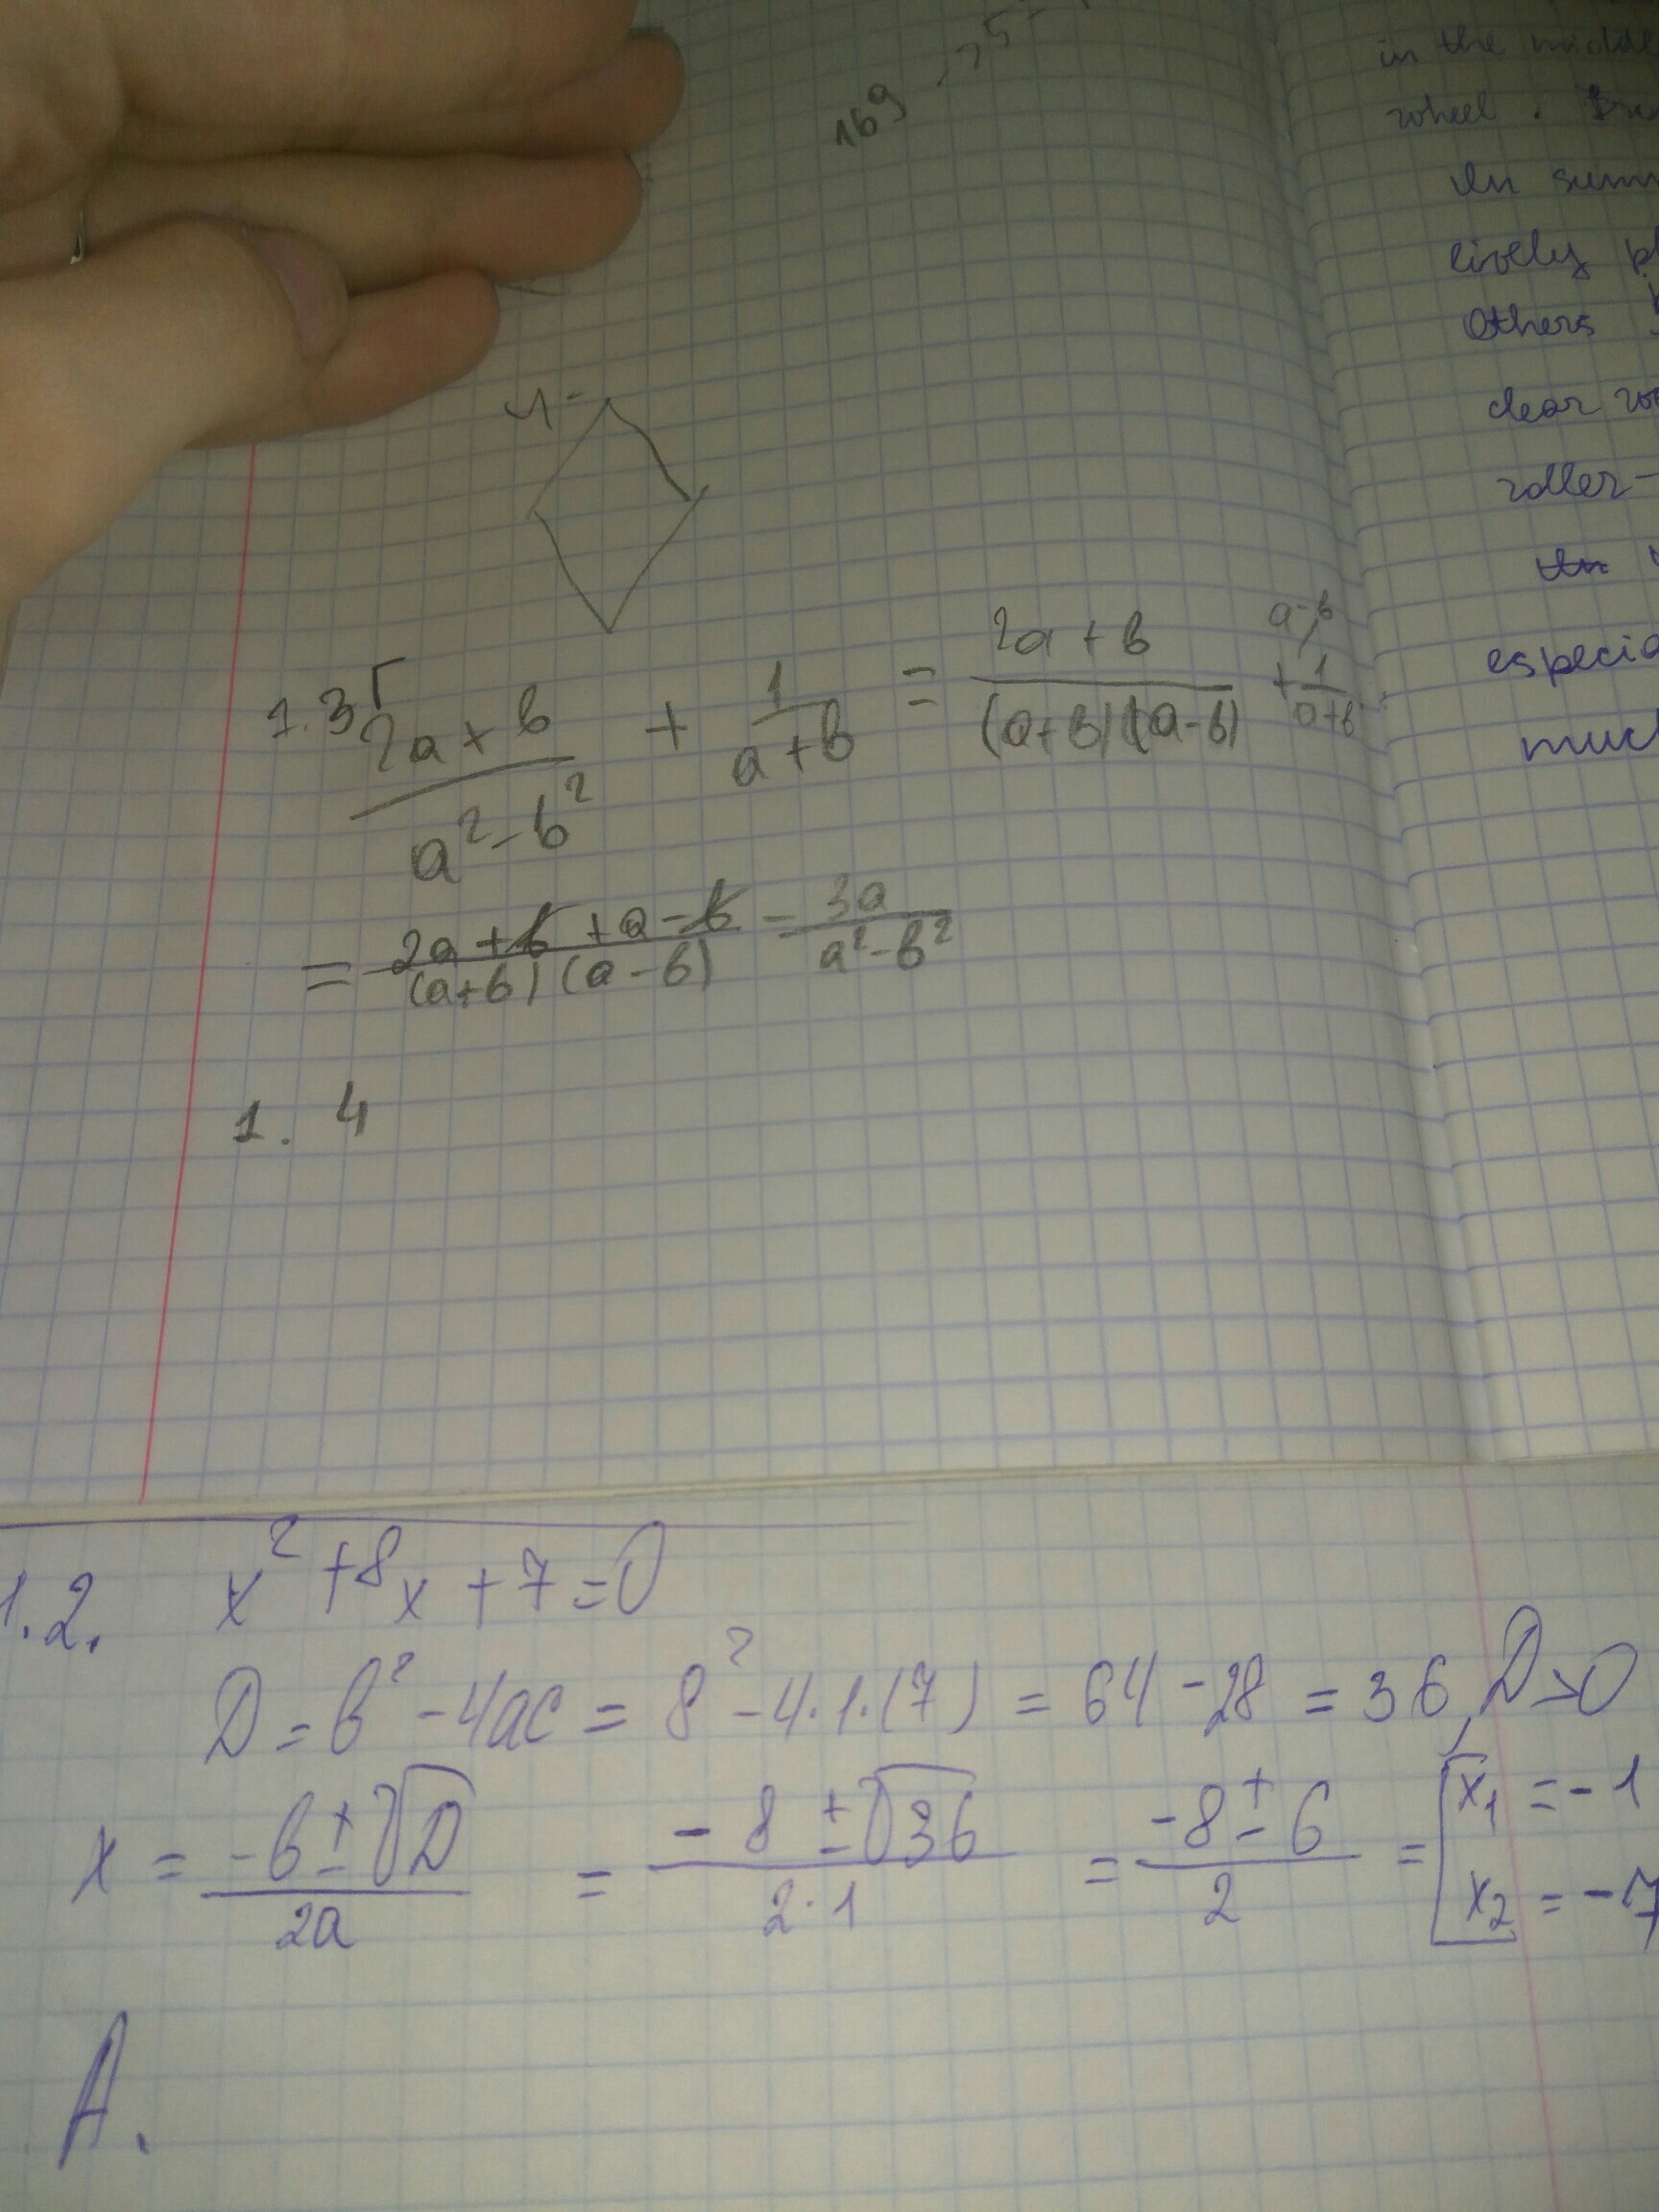 169
4-
1.3 Г
(2a + b)/(a² - b²) + 1/(a + b) = (2a + b)/((a+b)(a-b)) + 1/(a+b) a-b
= (2a + b + a - b)/((a+b)(a-b)) - 3a/(a² - b²)
1. 4
in the middle
wheel.
lively
Others
clear
roller-
1.2. x² + 8x + 7 = 0
D = b² - 4ac = 8² - 4·1·(7) = 64 - 28 = 36, D > 0
x = (-b ± √D)/2a = (-8 ± √36)/(2·1) = (-8 ± 6)/2 = [x₁ = -1
x₂ = -7
A.